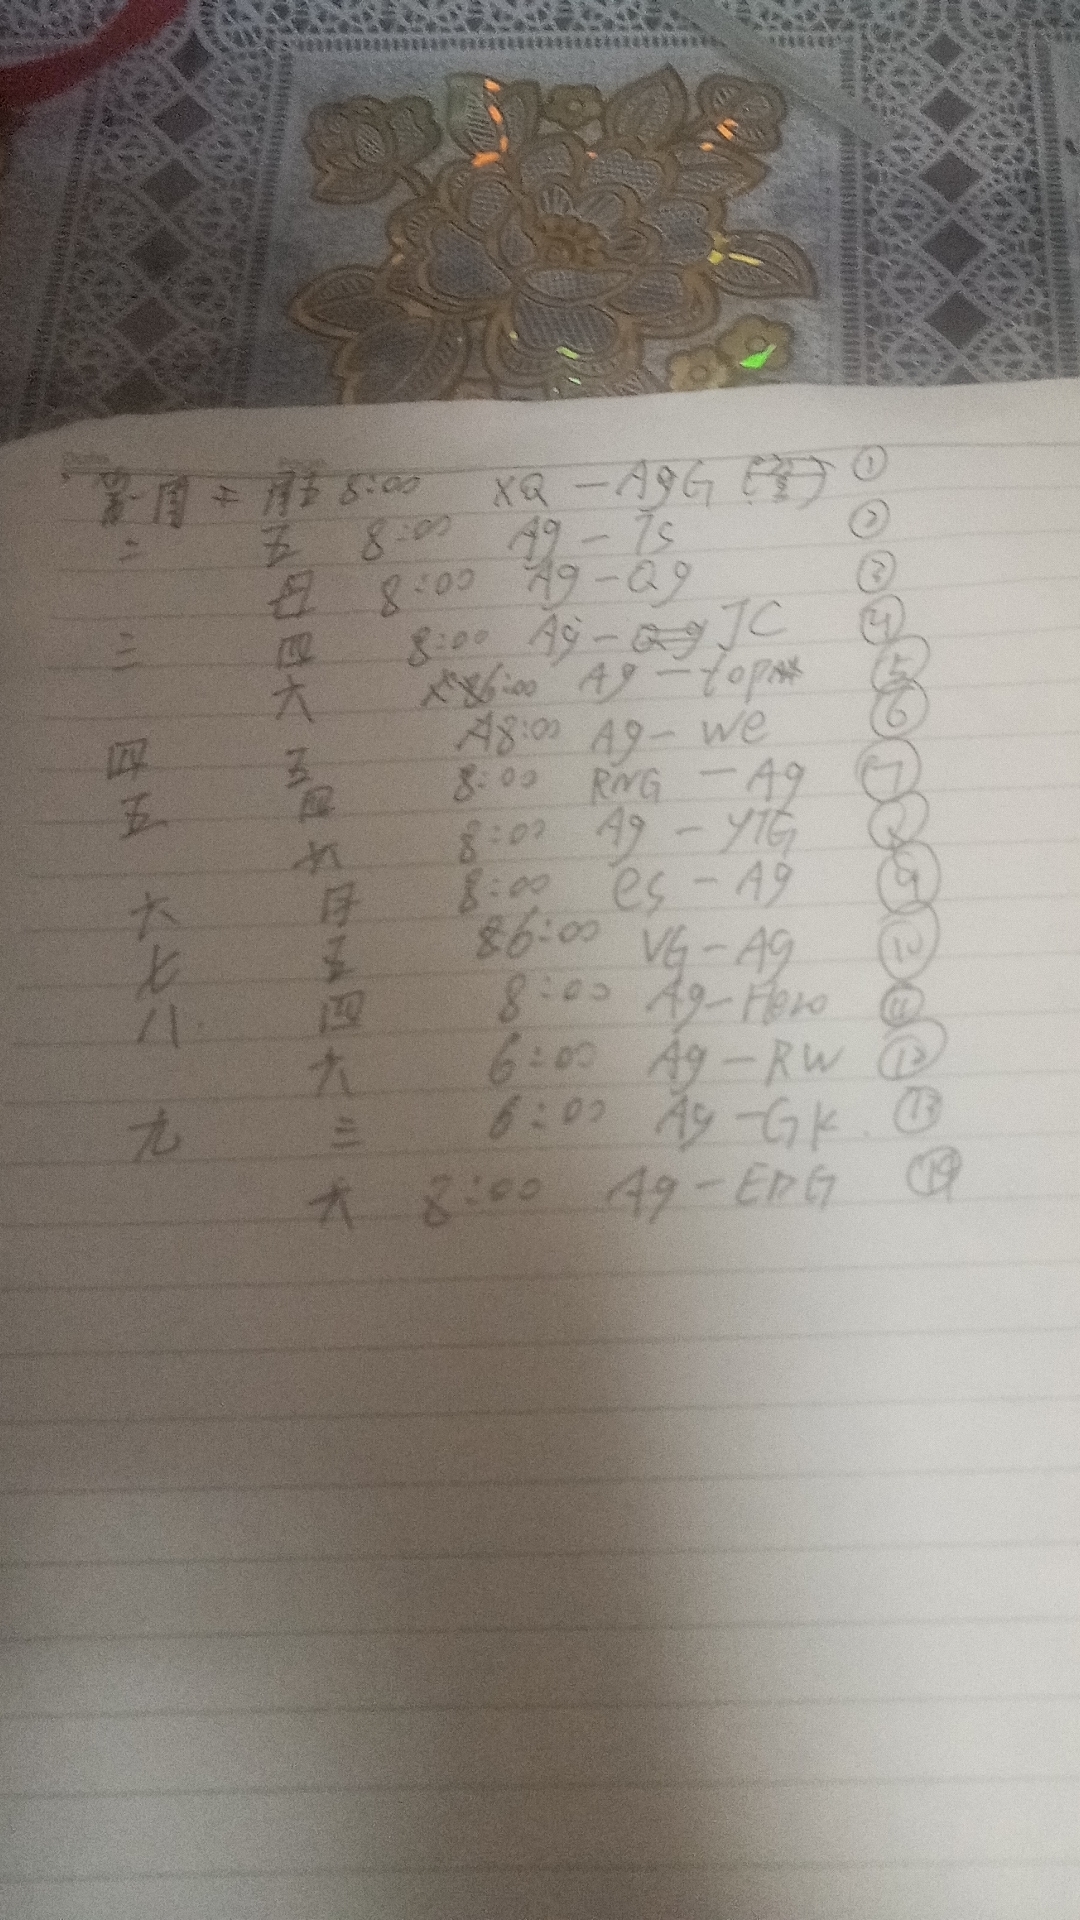 第一周 五 8:00 XQ - AgG ①
二 五 8:00 Ag - Ts ②
日 8:00 Ag - Qg ③
三 四 8:00 Ag - JC ④
六 6:00 Ag - top ⑤
四 五 8:00 Ag - we ⑥
五 四 8:00 RNG - Ag ⑦
六 8:00 Ag - YTG ⑧
六 日 8:00 es - Ag ⑨
七 五 6:00 VG - Ag ⑩
八 四 8:00 Ag - Hero ⑪
六 6:00 Ag - RW ⑫
九 三 6:00 Ag - GK ⑬
六 8:00 Ag - EDG ⑭